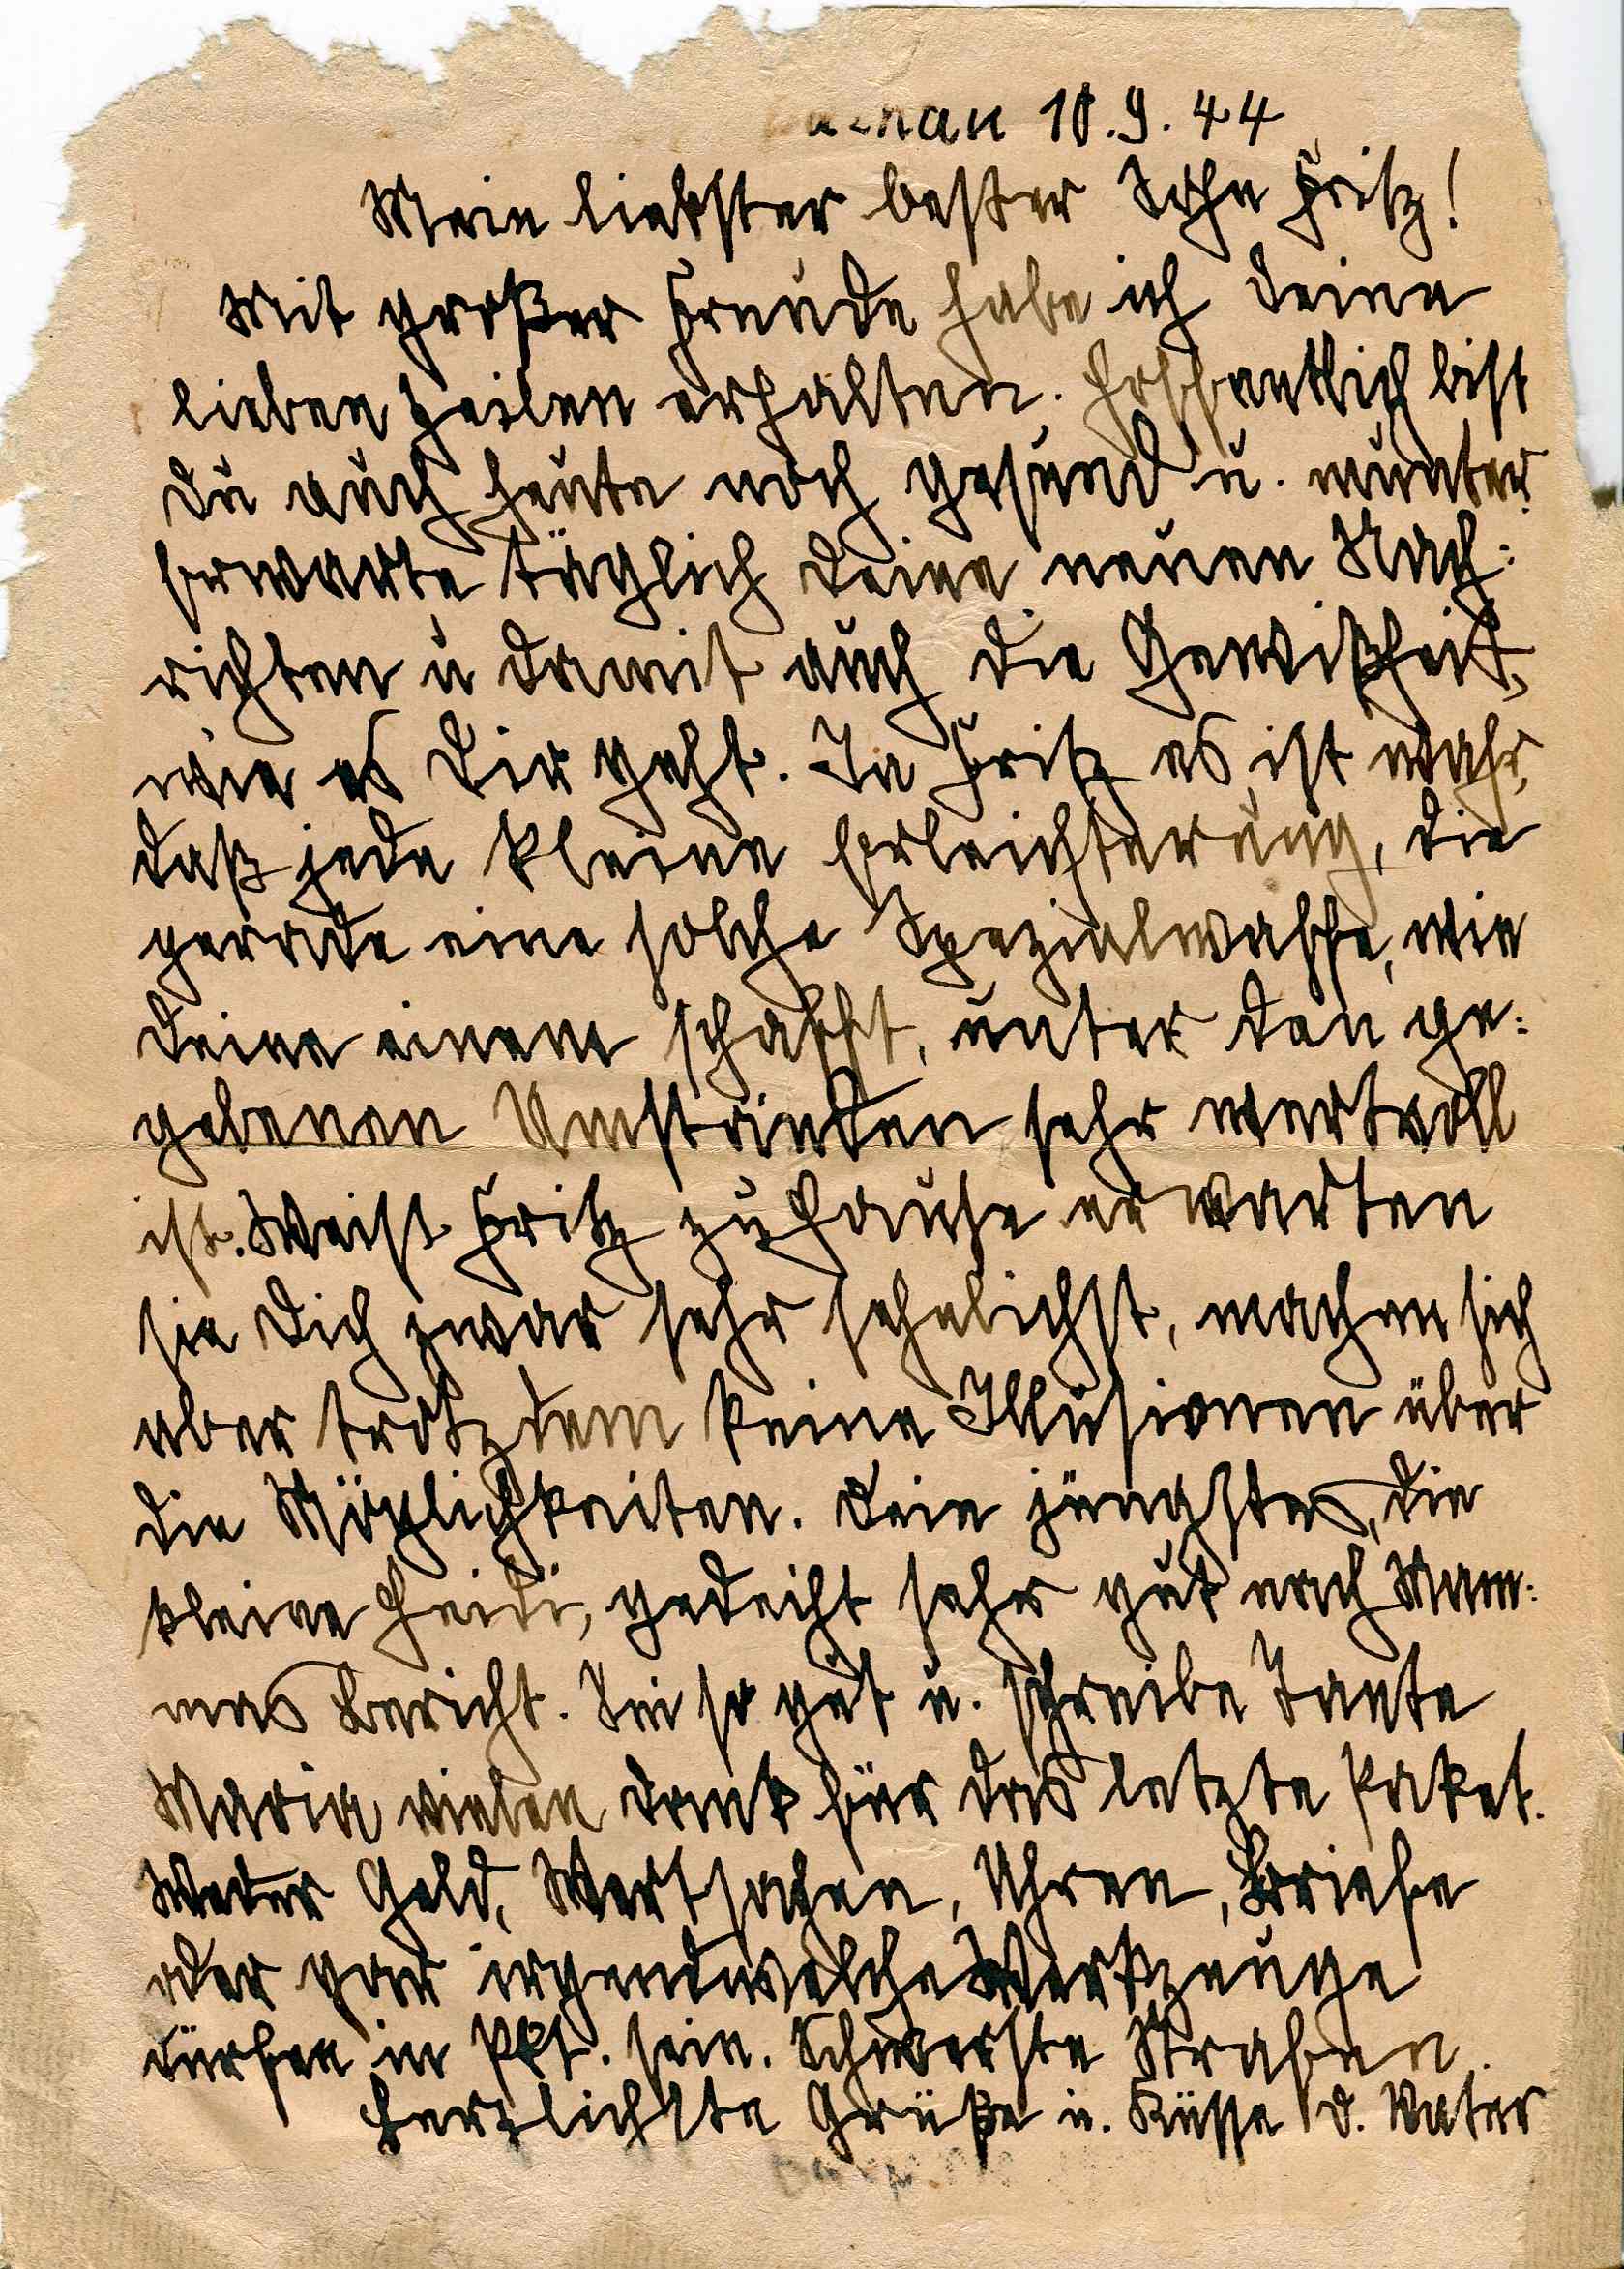 10.9.44
Mein liebster bester Sohn Fritz!
Mit großer Freude habe ich Deine
lieben Zeilen erhalten. Hoffentlich bist
Du auch heute noch gesund u. munter.
Erwarte täglich Deine neuen Nach:
richten u damit auch die Gewißheit,
wie es Dir geht. Ja Fritz es ist wahr,
daß jede kleine Erleichterung, die
gerade eine solche Spezialwaffe, wie
Deine einem schafft, unter den ge:
gebenen Umständen sehr wertvoll
ist. Weist Fritz zuhause erwarten
sie Dich zwar sehr sehnlichst, machen sich
aber trotzdem keine Illusionen über
die Möglichkeiten. Dein jüngstes, die
kleine Heidi, gedeiht sehr gut nach Mam:
mas Bericht. Sei so gut u. schreibe Tante
Maria vielen Dank für das letzte Paket.
Weder Geld, Wertsachen, Uhren, Briefe
oder gar irgendwelche Werkzeuge
dürfen in Pkt. sein. Schwerste Strafen.
Herzlichste Grüße u. Küsse D. Vater